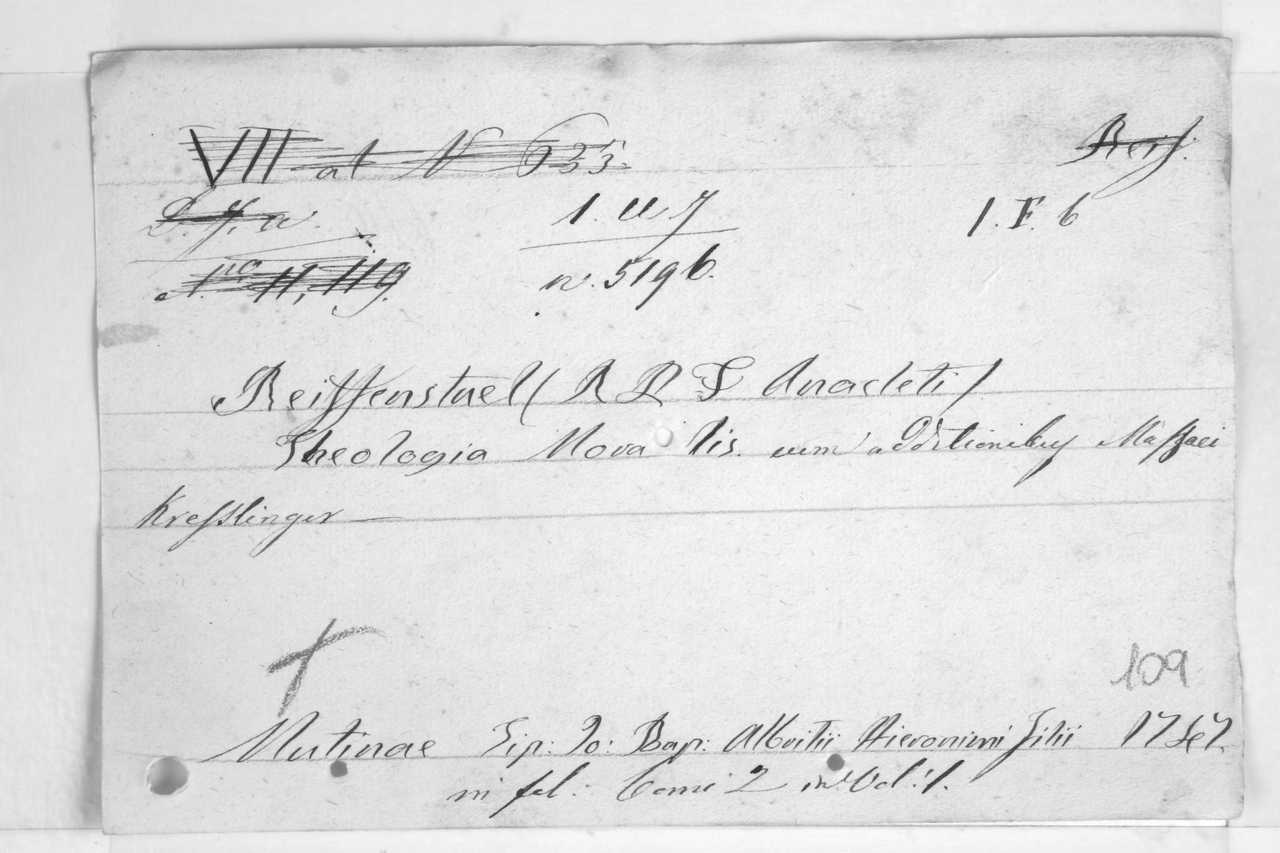 VII at N 635 Reif.
1. U 7 1. F. 6
Nro 11,119 n. 5196.
Reiffenstuel (R P F Anacleti)
Theologia Moralis. cum additionibus Massaei
Kresslinger
109
Mutinae Tip: Jo: Bap: Albritii Hieronimi filii 17
in fol: tomi 2 in Vol: 1.